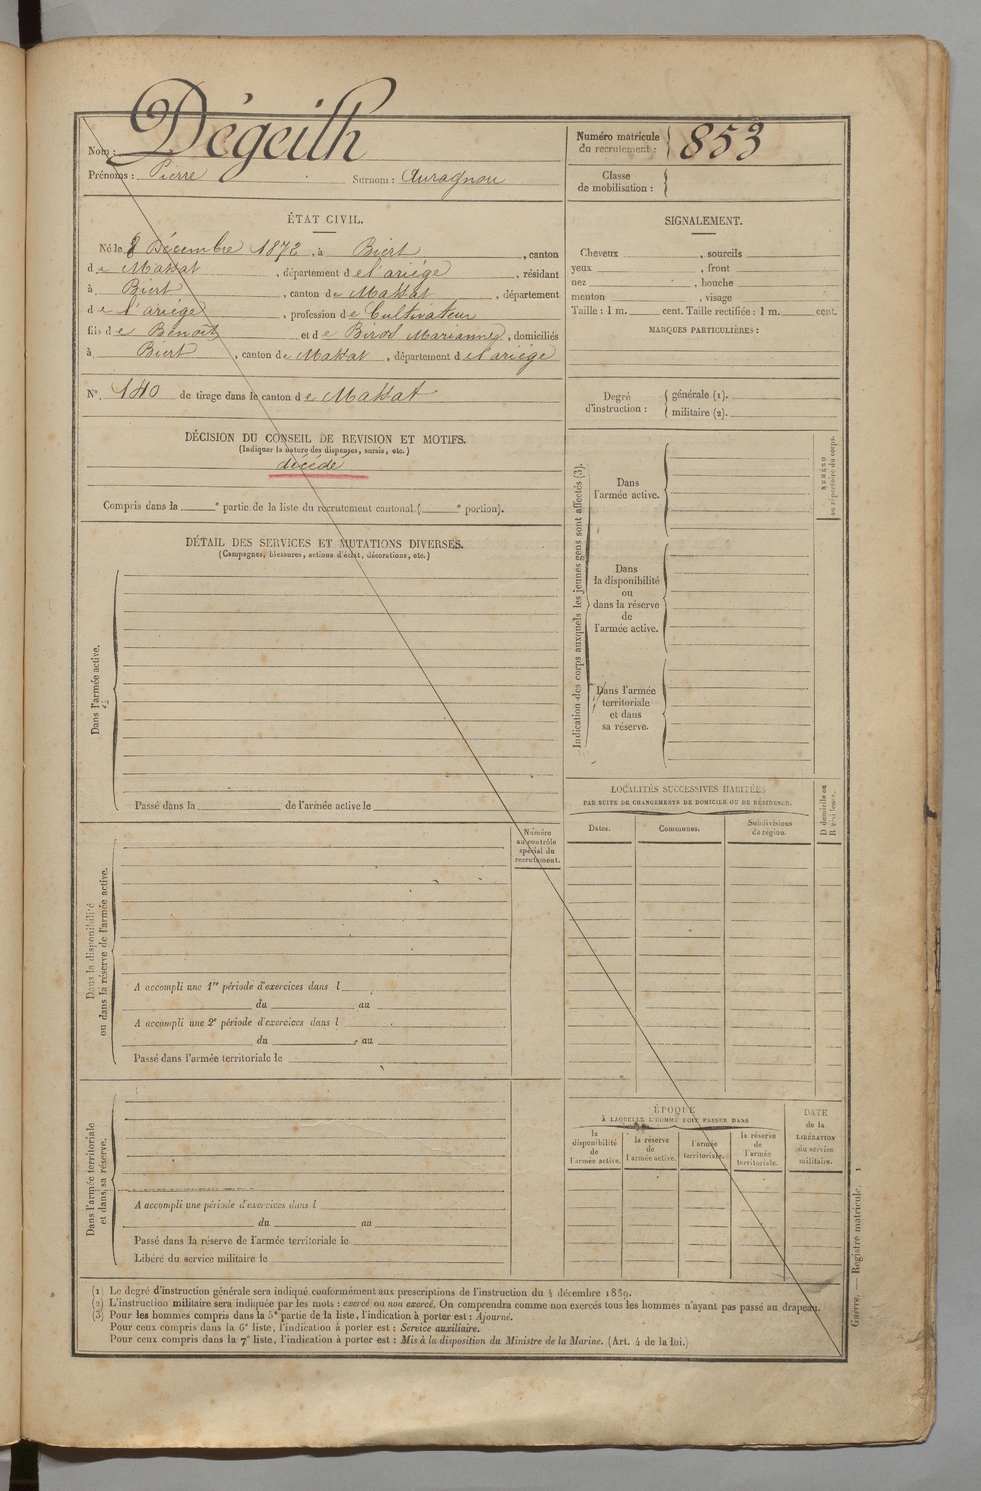 Nom : Dégeilh
Prénoms : Pierre Surnom : Auragnou
ÉTAT CIVIL.
Né le 8 Décembre 1872, à Biert, canton
de Massat, département de l'ariège, résidant
à Biert, canton de Massat, département
de l'ariège, profession de Cultivateur
fils de Benoît et de Biros Marianne, domiciliés
à Biert, canton de Massat, département de l'ariège
N°. 140 de tirage dans le canton de Massat
DÉCISION DU CONSEIL DE REVISION ET MOTIFS.
(Indiquer la nature des dispenses, sursis, etc.)
décédé
Compris dans la ° partie de la liste du recrutement cantonal ( ° portion).
DÉTAIL DES SERVICES ET MUTATIONS DIVERSES.
(Campagnes, blessures, actions d'éclat, décorations, etc.)
Dans l'armée active.
Passé dans la de l'armée active le
Dans la disponibilité
ou dans la réserve de l'armée active.
Numéro
au contrôle
spécial du
recrutement.
A accompli une 1re période d'exercices dans l
du au
A accompli une 2e période d'exercices dans l
du au
Passé dans l'armée territoriale le
Dans l'armée territoriale
et dans sa réserve.
A accompli une période d'exercices dans l
du au
Passé dans la réserve de l'armée territoriale le
Libéré du service militaire le
Numéro matricule
du recrutement : 853
Classe
de mobilisation :
SIGNALEMENT.
Cheveux , sourcils
yeux , front
nez , bouche
menton , visage
Taille : 1 m. cent. Taille rectifiée : 1 m. cent.
MARQUES PARTICULIÈRES :
Degré
d'instruction :
générale (1).
militaire (2).
Indication des corps auxquels les jeunes gens sont affectés (3).
Dans
l'armée active.
NUMÉRO
au répertoire du corps.
Dans
la disponibilité
ou
dans la réserve
de
l'armée active.
Dans l'armée
territoriale
et dans
sa réserve.
LOCALITÉS SUCCESSIVES HABITÉES
PAR SUITE DE CHANGEMENTS DE DOMICILE OU DE RÉSIDENCE.
D domicile ou
R résidence.
Dates. Communes. Subdivisions
de région.
ÉPOQUE
À LAQUELLE L'HOMME DOIT PASSER DANS
la
disponibilité
de
l'armée active.
la réserve
de
l'armée active.
l'armée
territoriale.
la réserve
de
l'armée
territoriale.
DATE
de la
LIBÉRATION
du service
militaire.
(1) Le degré d'instruction générale sera indiqué conformément aux prescriptions de l'instruction du 4 décembre 1889.
(2) L'instruction militaire sera indiquée par les mots : exercé ou non exercé. On comprendra comme non exercés tous les hommes n'ayant pas passé au drapeau.
(3) Pour les hommes compris dans la 5e partie de la liste, l'indication à porter est : Ajourné.
Pour ceux compris dans la 6e liste, l'indication à porter est : Service auxiliaire.
Pour ceux compris dans la 7e liste, l'indication à porter est : Mis à la disposition du Ministre de la Marine. (Art. 4 de la loi.)
Guerre. — Registre matricule. 1